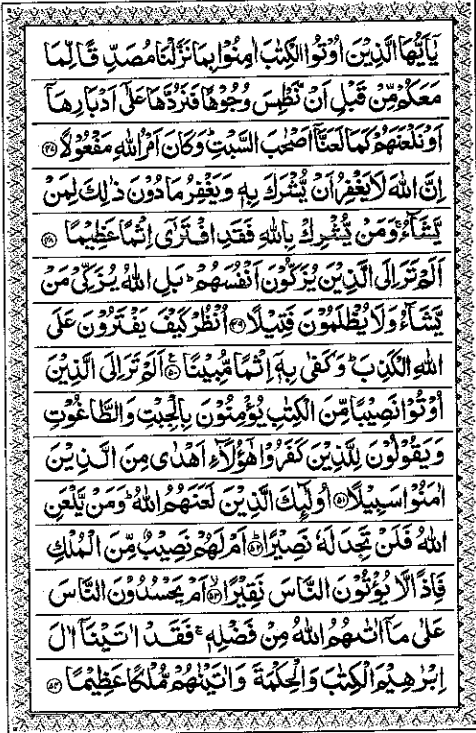 يٰۤاَيُّهَا الَّذِيْنَ اُوْتُوا الْكِتٰبَ اٰمِنُوْا بِمَا نَزَّلْنَا مُصَدِّقًا لِّمَا
مَعَكُمْ مِّنْ قَبْلِ اَنْ نَّطْمِسَ وُجُوْهًا فَنَرُدَّهَا عَلٰۤى اَدْبَارِهَاۤ
اَوْ نَلْعَنَهُمْ كَمَا لَعَنَّاۤ اَصْحٰبَ السَّبْتِ ؕ وَكَانَ اَمْرُ اللّٰهِ مَفْعُوْلًا ﴿۴۷﴾
اِنَّ اللّٰهَ لَا يَغْفِرُ اَنْ يُّشْرَكَ بِهٖ وَيَغْفِرُ مَا دُوْنَ ذٰلِكَ لِمَنْ
يَّشَآءُ ۚ وَمَنْ يُّشْرِكْ بِاللّٰهِ فَقَدِ افْتَرٰۤى اِثْمًا عَظِيْمًا ﴿۴۸﴾
اَلَمْ تَرَ اِلَى الَّذِيْنَ يُزَكُّوْنَ اَنْفُسَهُمْ ؕ بَلِ اللّٰهُ يُزَكِّيْ مَنْ
يَّشَآءُ وَلَا يُظْلَمُوْنَ فَتِيْلًا ﴿۴۹﴾ اُنْظُرْ كَيْفَ يَفْتَرُوْنَ عَلَى
اللّٰهِ الْكَذِبَ ؕ وَكَفٰى بِهٖۤ اِثْمًا مُّبِيْنًا ﴿۵۰﴾ اَلَمْ تَرَ اِلَى الَّذِيْنَ
اُوْتُوْا نَصِيْبًا مِّنَ الْكِتٰبِ يُؤْمِنُوْنَ بِالْجِبْتِ وَالطَّاغُوْتِ
وَيَقُوْلُوْنَ لِلَّذِيْنَ كَفَرُوْا هٰۤؤُلَآءِ اَهْدٰى مِنَ الَّذِيْنَ
اٰمَنُوْا سَبِيْلًا ﴿۵۱﴾ اُولٰٓئِكَ الَّذِيْنَ لَعَنَهُمُ اللّٰهُ ؕ وَمَنْ يَّلْعَنِ
اللّٰهُ فَلَنْ تَجِدَ لَهٗ نَصِيْرًا ﴿۵۲﴾ اَمْ لَهُمْ نَصِيْبٌ مِّنَ الْمُلْكِ
فَاِذًا لَّا يُؤْتُوْنَ النَّاسَ نَقِيْرًا ﴿۵۳﴾ اَمْ يَحْسُدُوْنَ النَّاسَ
عَلٰى مَاۤ اٰتٰىهُمُ اللّٰهُ مِنْ فَضْلِهٖ ۚ فَقَدْ اٰتَيْنَاۤ اٰلَ
اِبْرٰهِيْمَ الْكِتٰبَ وَالْحِكْمَةَ وَاٰتَيْنٰهُمْ مُّلْكًا عَظِيْمًا ﴿۵۴﴾